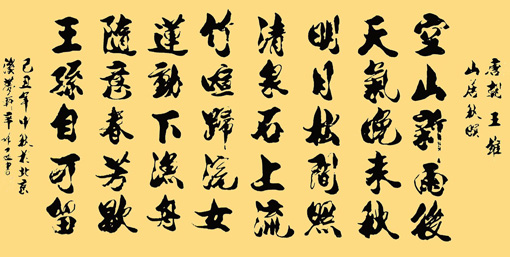 唐朝王維
山居秋暝
空山新雨後
天氣晚来秋
明月松間照
清泉石上流
竹喧歸浣女
蓮動下漁舟
隨意春芳歇
王孫自可留
己丑年中秋於北京